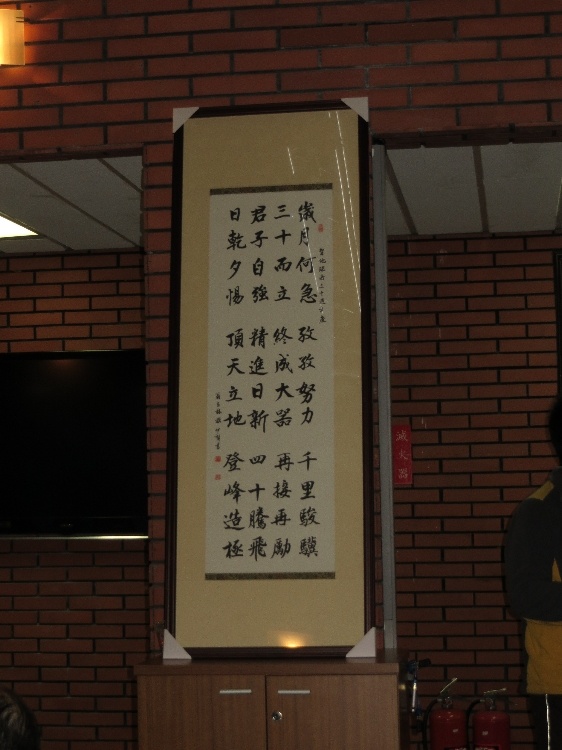 歲月何急 孜孜努力 千里駿驥
三十而立 終成大器 再接再勵
君子自強 精進日新 四十騰飛
日乾夕惕 頂天立地 登峰造極
滅火器